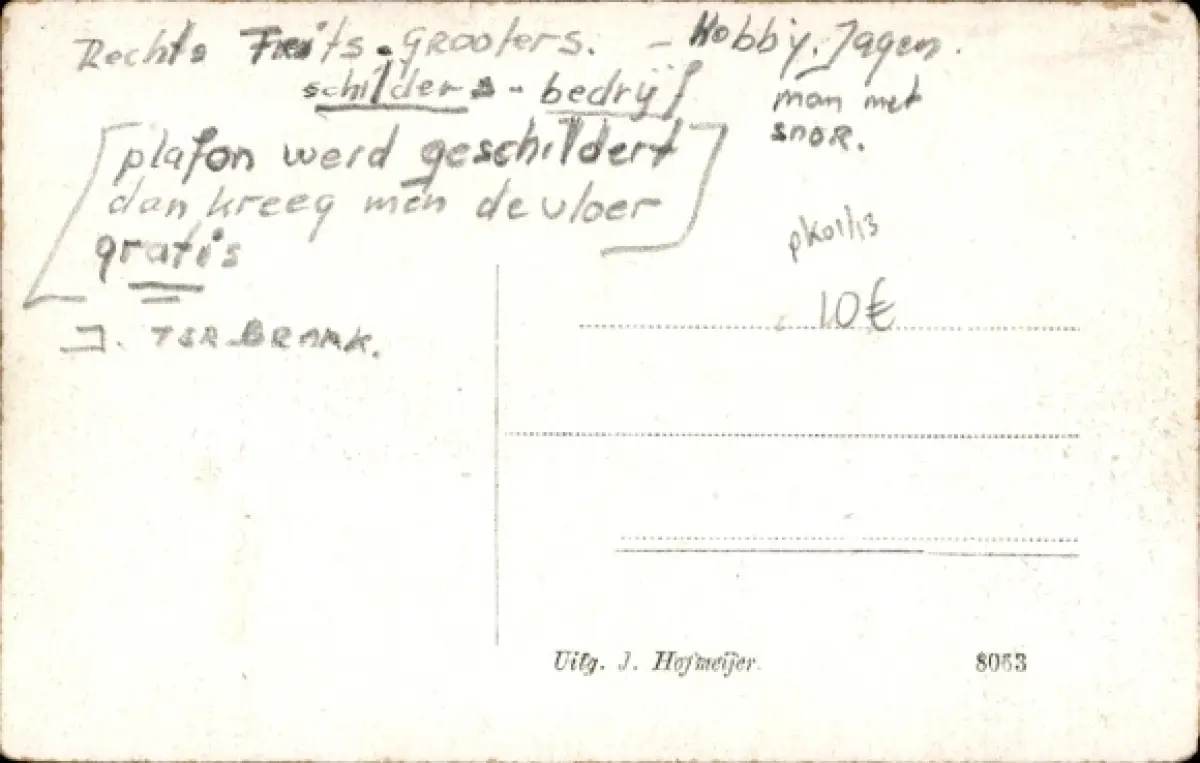 Rechts Frits. Grooters. - Hobby. Jagen.
schilders - bedrijf
man met
snor.
[plafon werd geschildert]
dan kreeg men de vloer
gratis
J. TER BRAAK.
pk01/13
10€
Uitg. J. Hofmeijer.
8063